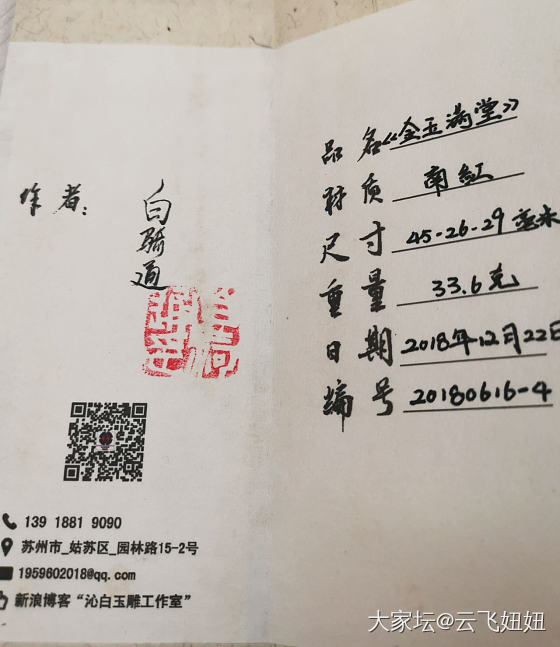 作者：
白骑通
139 1881 9090
苏州市_姑苏区_园林路15-2号
1959602018@qq.com
新浪博客“沁白玉雕工作室”
品名《金玉满堂》
材质 南红
尺寸 45-26-29毫米
重量 33.6克
日期 2018年12月22日
编号 20180616-4
大家坛@云飞妞妞